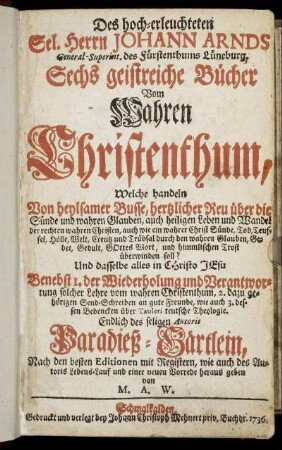 Des hoch-erleuchteten
Sel. Herrn JOHANN ARNDS
General-Superint. des Fürstenthums Lüneburg,
Sechs geistreiche Bücher
Vom
Wahren
Christenthum,
Welche handeln
Von heylsamer Busse, hertzlicher Reu über die
Sünde und wahren Glauben, auch heiligen Leben und Wandel
der rechten wahren Christen, auch wie ein wahrer Christ Sünde, Tod, Teuf-
fel, Hölle, Welt, Creutz und Trübsal durch den wahren Glauben, Ge-
bet, Gedult, GOttes Wort, und himmlischen Trost
überwinden soll?
Und dasselbe alles in CHristo JEsu
Benebst 1. der Wiederholung und Verantwor-
tung solcher Lehre vom wahren Christenthum, 2. dazu ge-
hörigen Send-Schreiben an gute Freunde, wie auch 3. des-
sen Bedencken über Tauleri teutsche Theologie.
Endlich des seligen Autoris
Paradieß-Gärtlein,
Nach den besten Editionen mit Registern, wie auch des Au-
toris Lebens-Lauf und einer neuen Vorrede heraus geben
von
M. A. W.
Schmalkalden,
Gedruckt und verlegt bey Johann Christoph Mehnert priv. Buchdr. 1736.